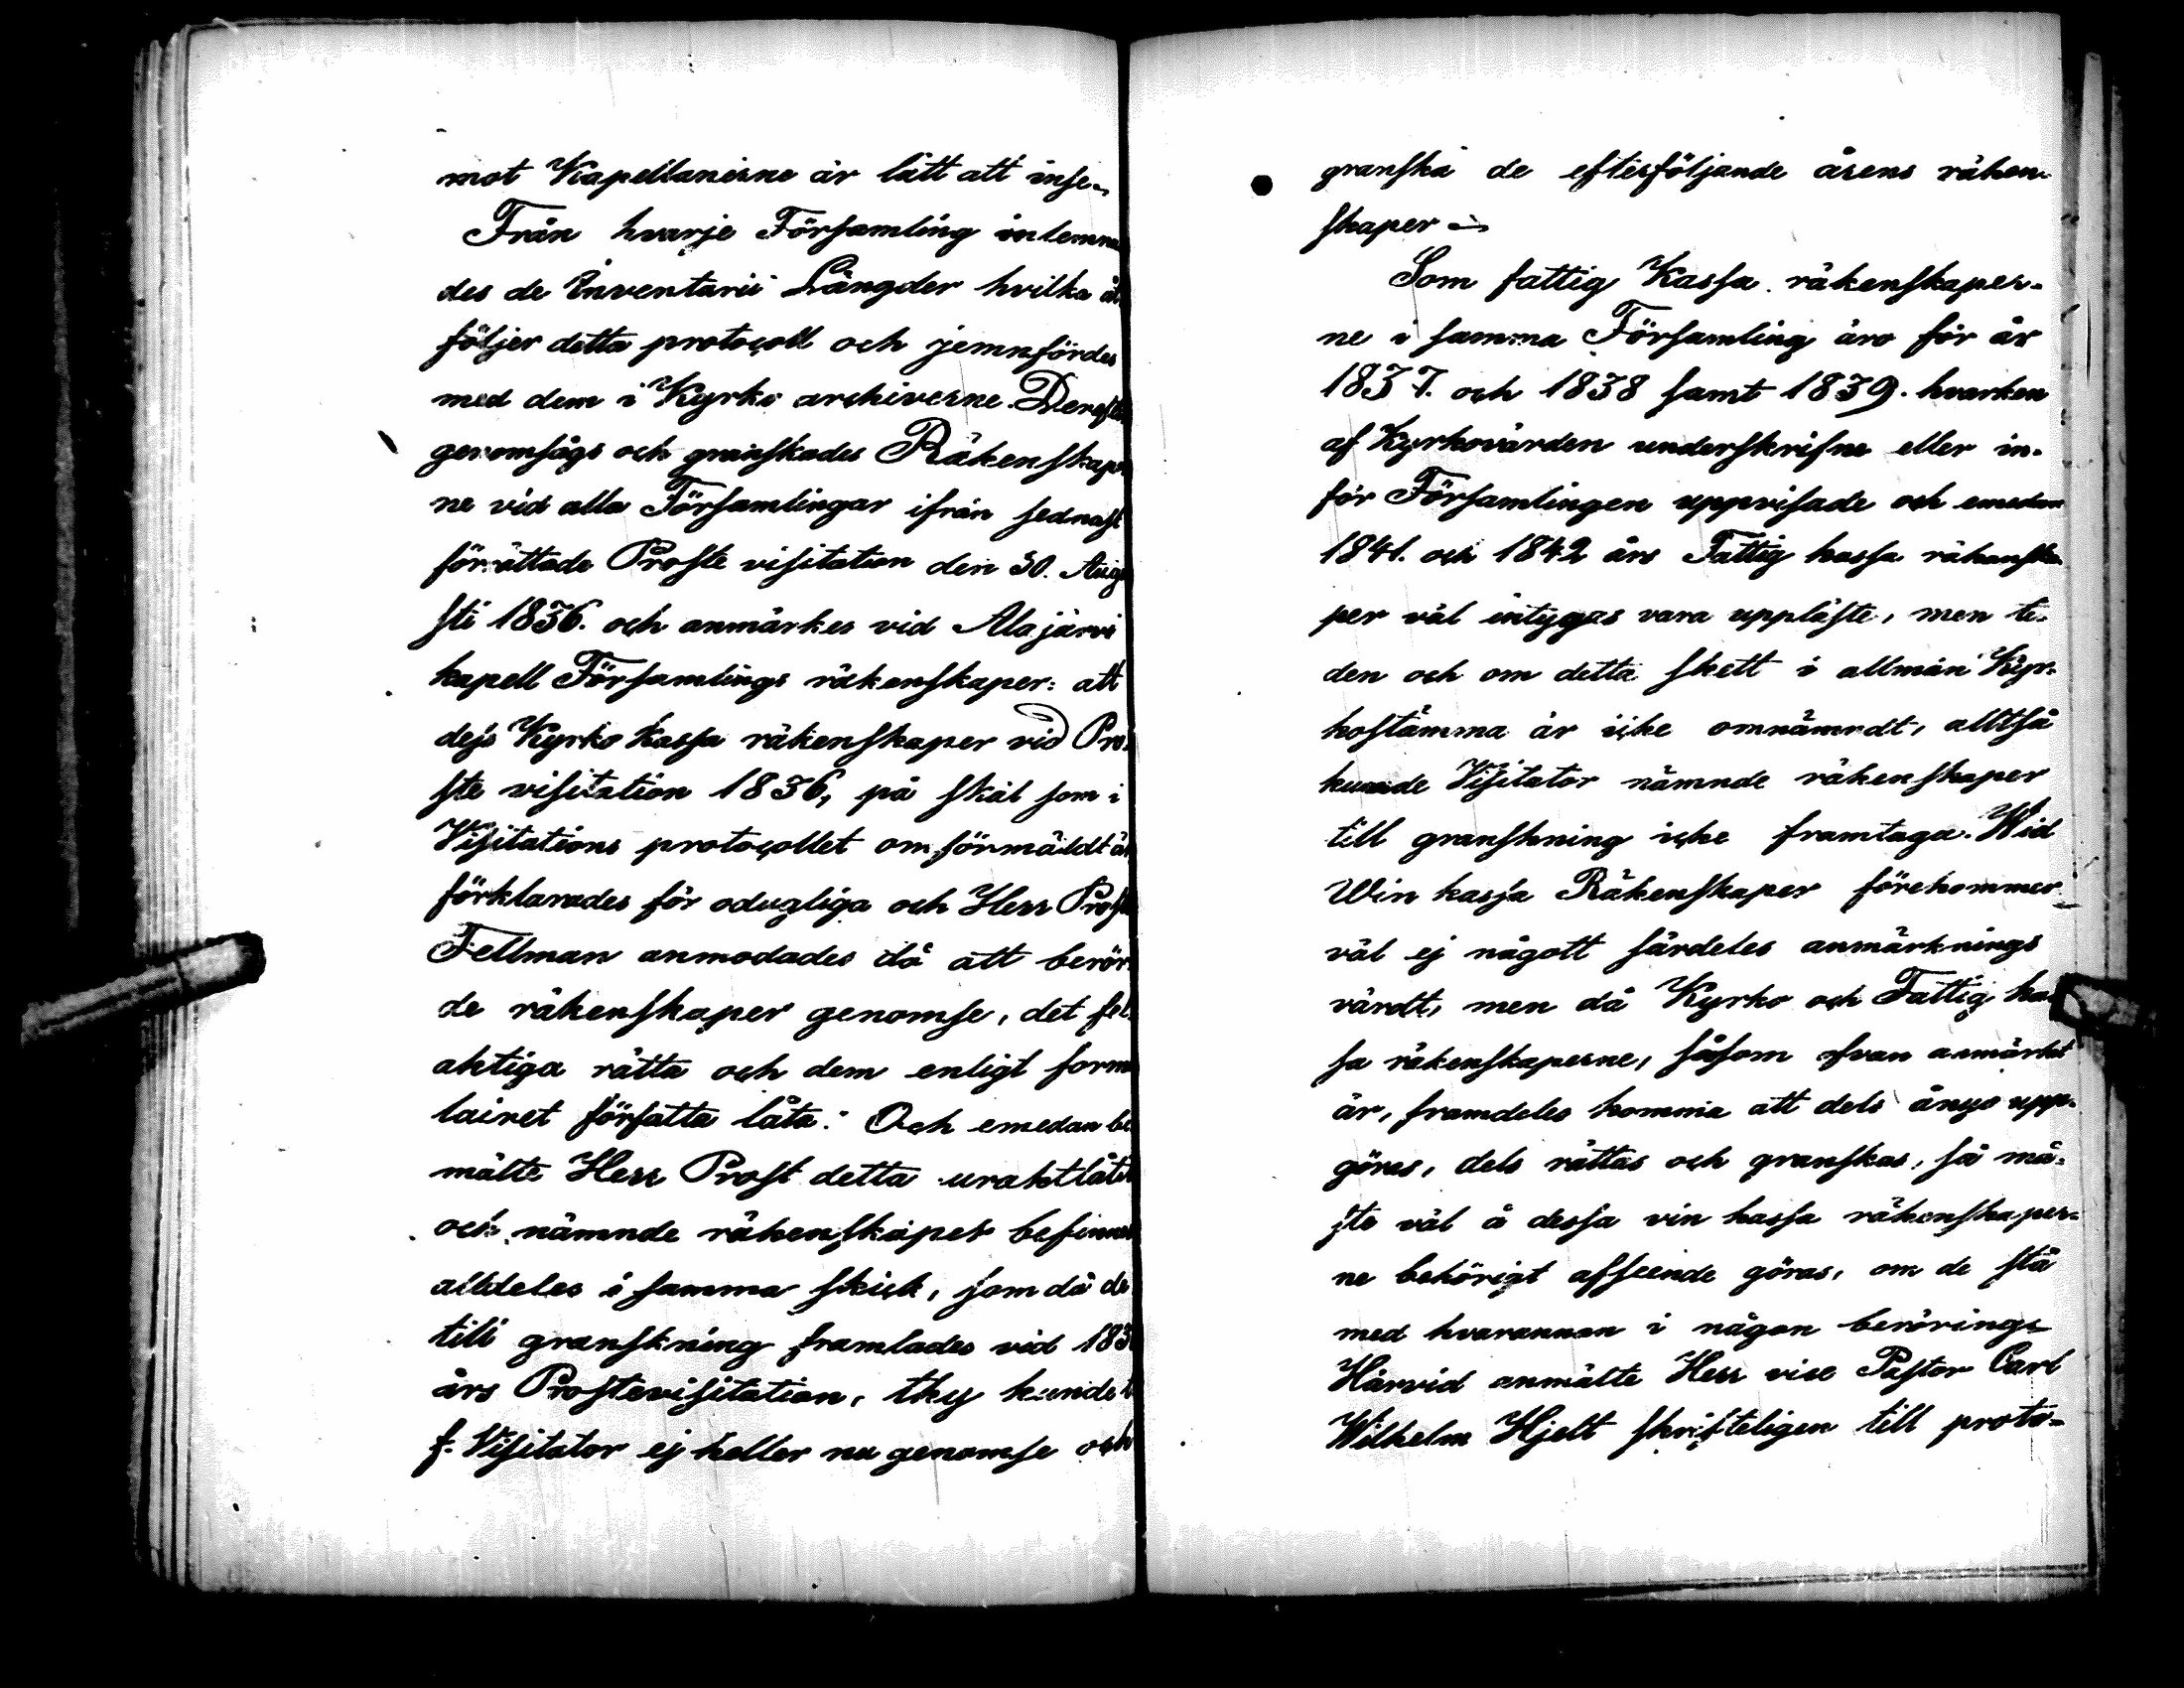 mot Kapellanerne är lätt att inse.
Från hvarje Församling inlemna
des de Inventarii Längder hvilka åt
följer detta protocoll och jemnfördes
med dem i Kyrko archiverne. Derefter
genomsågs och granskades Räkenskaper
ne vid alla Församlingar ifrån sednast
förrättade Proste visitation den 30. Augu
sti 1836. och anmärkes vid Alajärvi
kapell Församlings räkenskaper: att
dess Kyrko Kassa räkenskaper vid Pro
ste visitation 1836, på skäl som i
Visitations protocollet omförmäldt är
förklarades för odugliga och Herr Prosten
Fellman anmodades då att berör
de räkenskaper genomse, det fel
aktiga rätta och dem enligt formu
lairet författa låta. Och emedan be
mälte Herr Prost detta uraktlåtit
och nämnde räkenskaper befinnes
alldeles i samma skick, som då de
till granskning framlades vid 183
års Prostevisitation, thy kunde t
f. Visitator ej heller nu genomse och
granska de efterföljande årens räken-
skaper
Som fattig Kassa räkenskaper-
ne i samma Församling äro för år
1837. och 1838 samt 1839. hvarken
af Kyrkovärden underskrifne eller in-
för Församlingen uppvisade och emedan
1841. och 1842 års Fattig kassa räkenska
per väl intygas vara uppläste, men ti-
den och om detta skett i allmän Kyr-
kostämma är icke omnämndt, alltså
kunde Visitator nämnde räkenskaper
till granskning icke framtaga. Wid
Win kassa Räkenskaper förekommer
väl ej någott särdeles anmärknings
värdt, men då Kyrko och Fattig kas
sa räkenskaperne, såsom ofvan anmärkt
är, framdeles komma att dels ånyo upp-
göres, dels rättas och granskas, så må-
ste väl å dessa vin kassa räkenskaper-
ne behörigt afseende göras, om de stå
med hvarannan i någon beröring.
Härvid anmälte Herr vice Pastor Carl
Wilhelm Hjelt skrifteligen till proto-